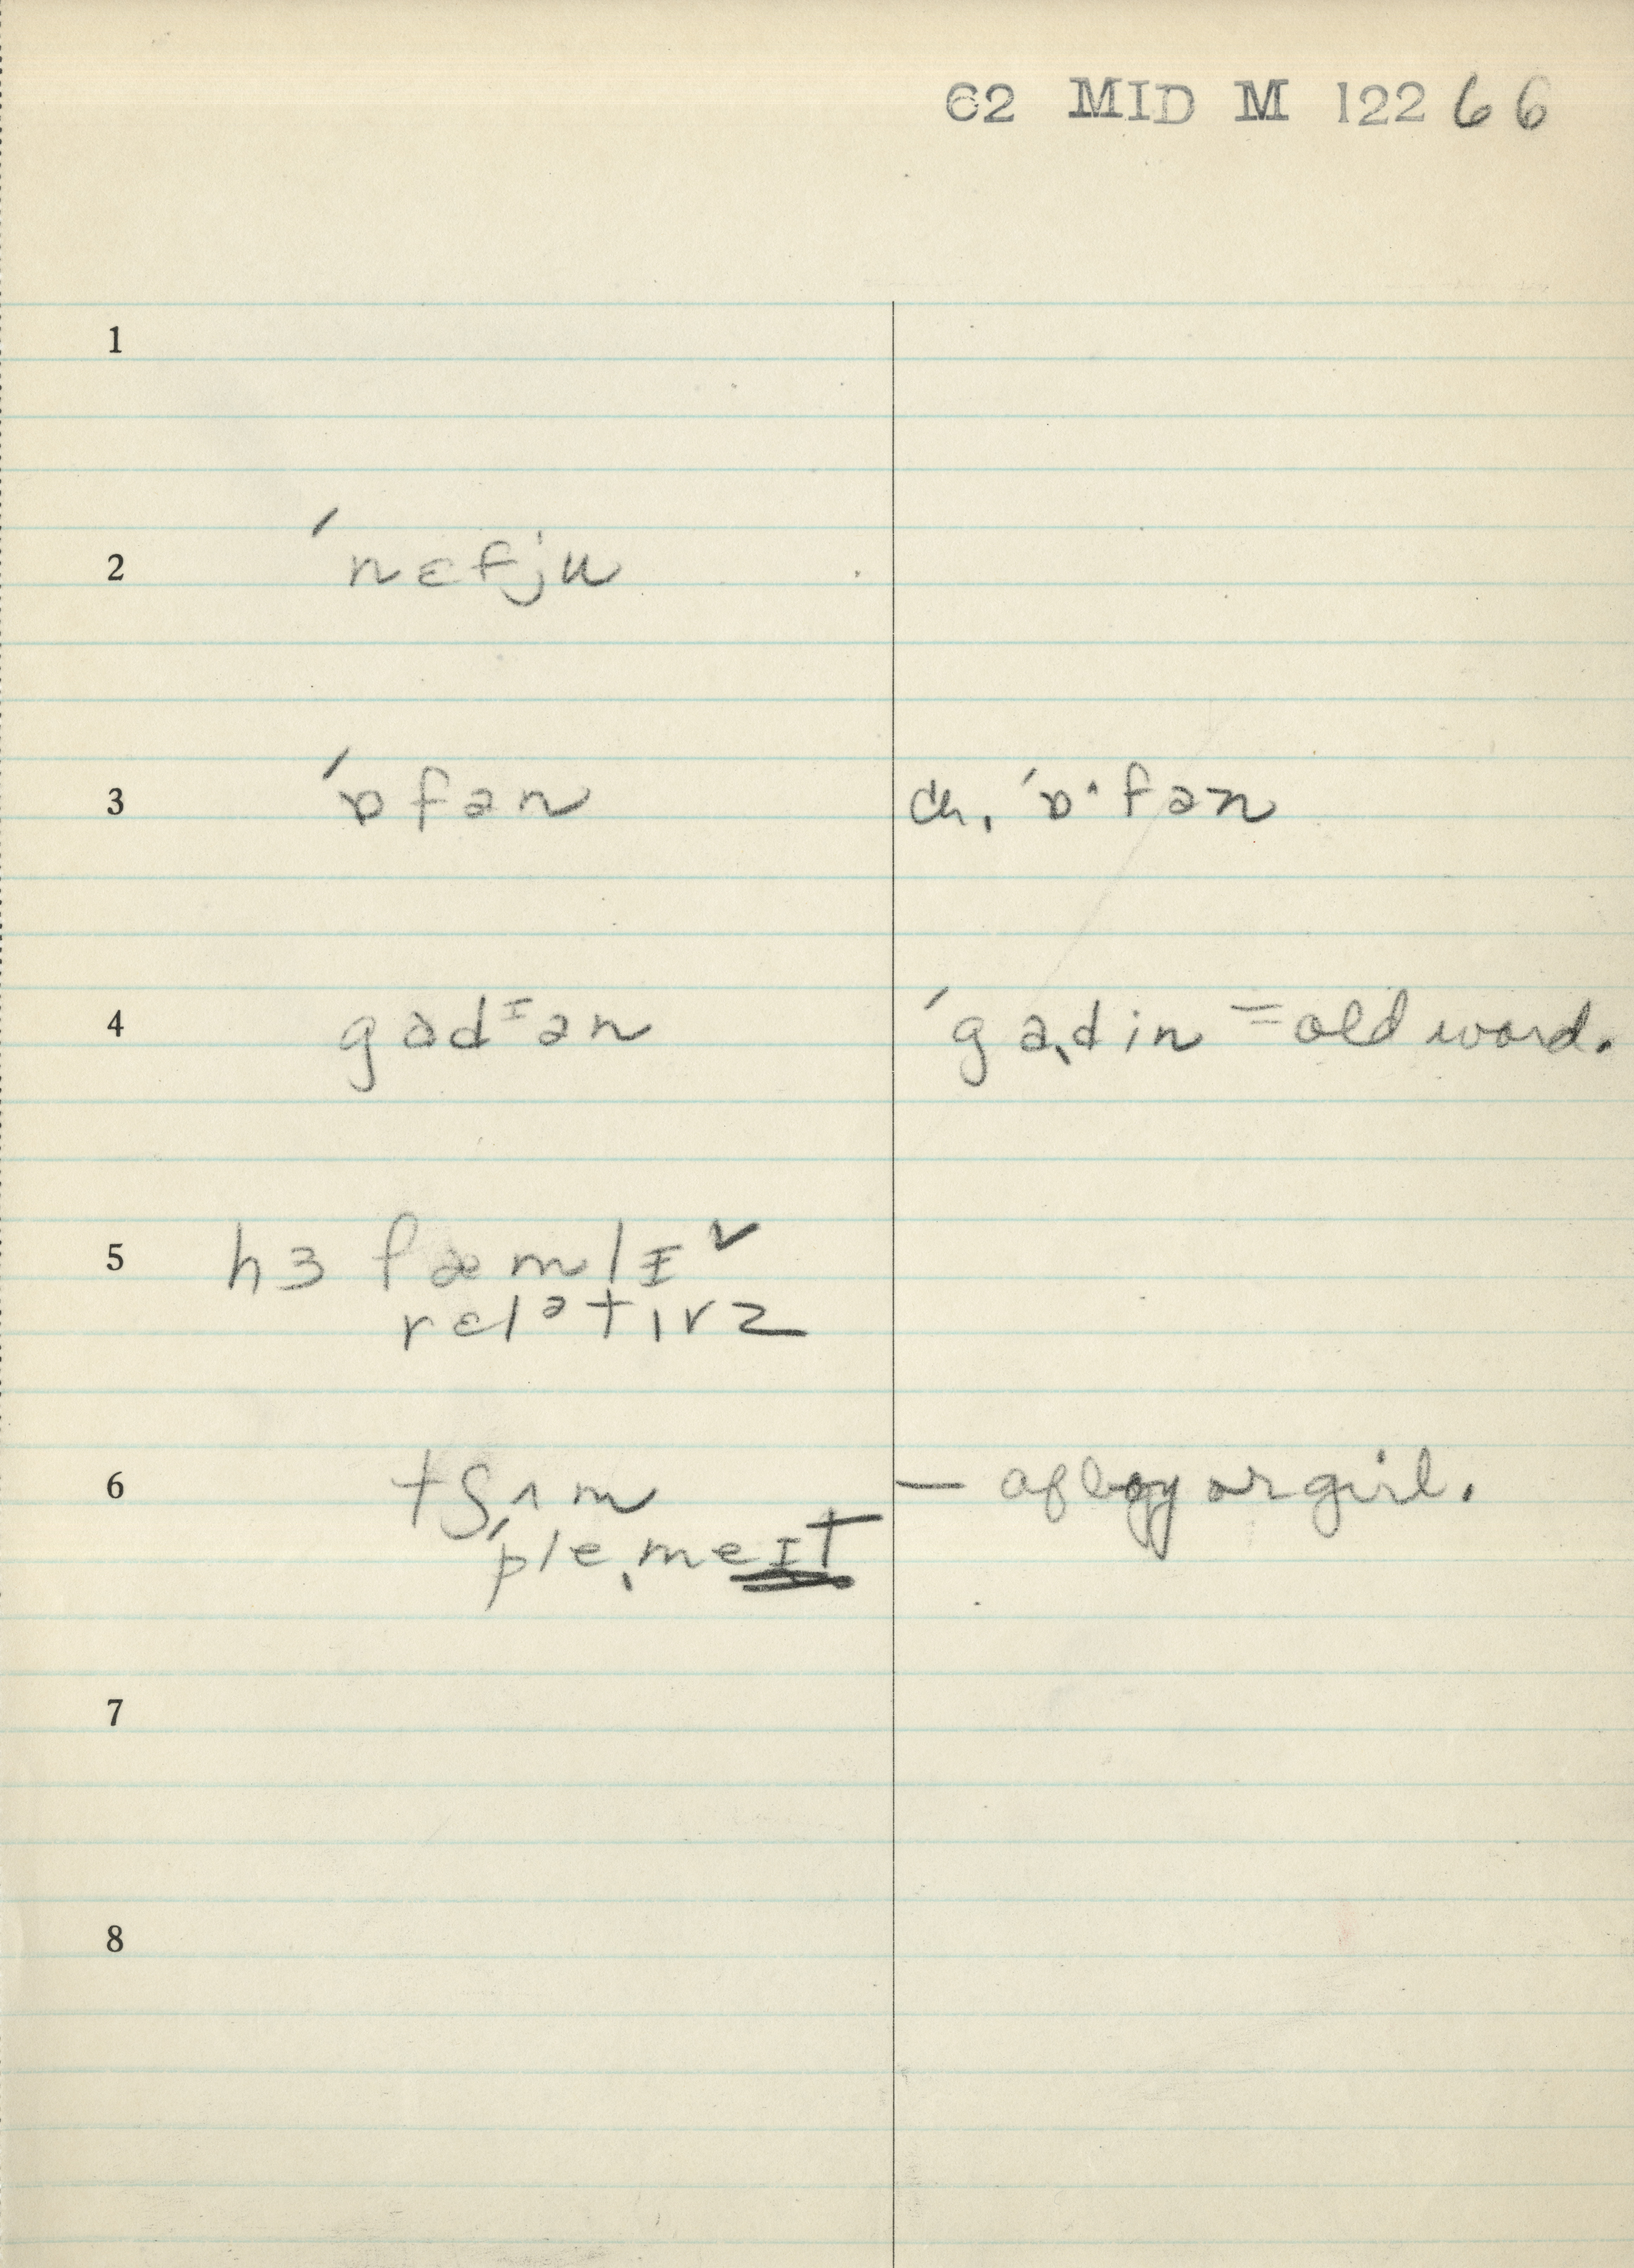 62 MID M 122 66
1
2 ˈnɛfju
3 ˈɒfən ch. ˈɒ·fən
4 gɑdɪən ˈgɑˌdin = old word.
5 hɜ fæmlɪ ✓
relətɪvz
6 tʃʌm — of boy or girl.
ˈpleˌmeɪt
7
8